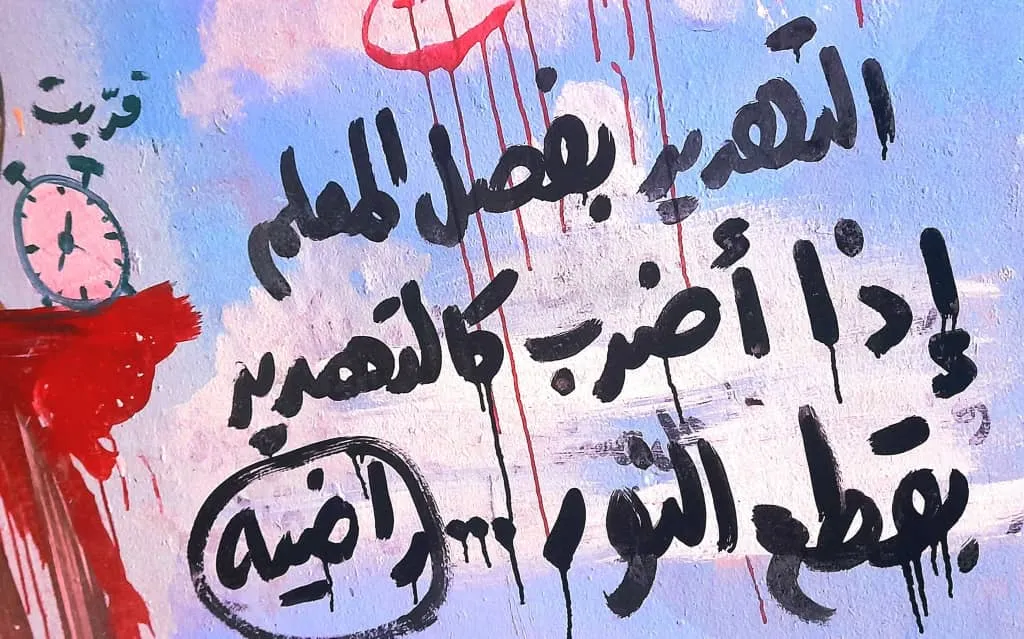 قرّبت
التهدير بفصل المعلم
إذا أضرب كالتهدير
بقطع النور ... راضيه